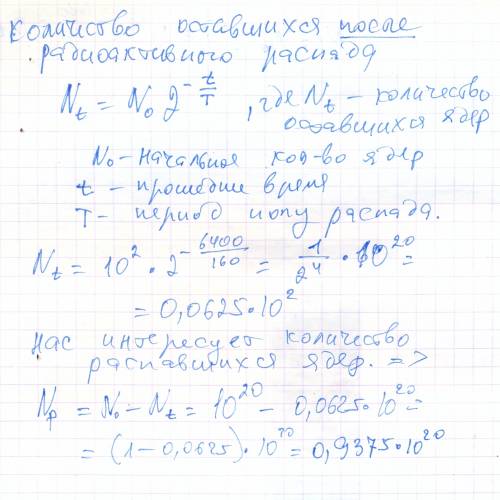 количество оставшихся после
радиоактивного распада
N_t = N_0 2^{-t/T}, где N_t – количество
оставшихся ядер
N_0 – начальное кол-во ядер
t – прошедшее время
T – период полу распада.
N_t = 10^2 · 2^{-6400/160} = 1/2^4 · 10^20 =
= 0,0625 · 10^2
нас интересует количество
распавшихся ядер. =>
N_p = N_0 – N_t = 10^20 – 0,0625 · 10^20 =
= (1 – 0,0625) · 10^20 = 0,9375 · 10^20